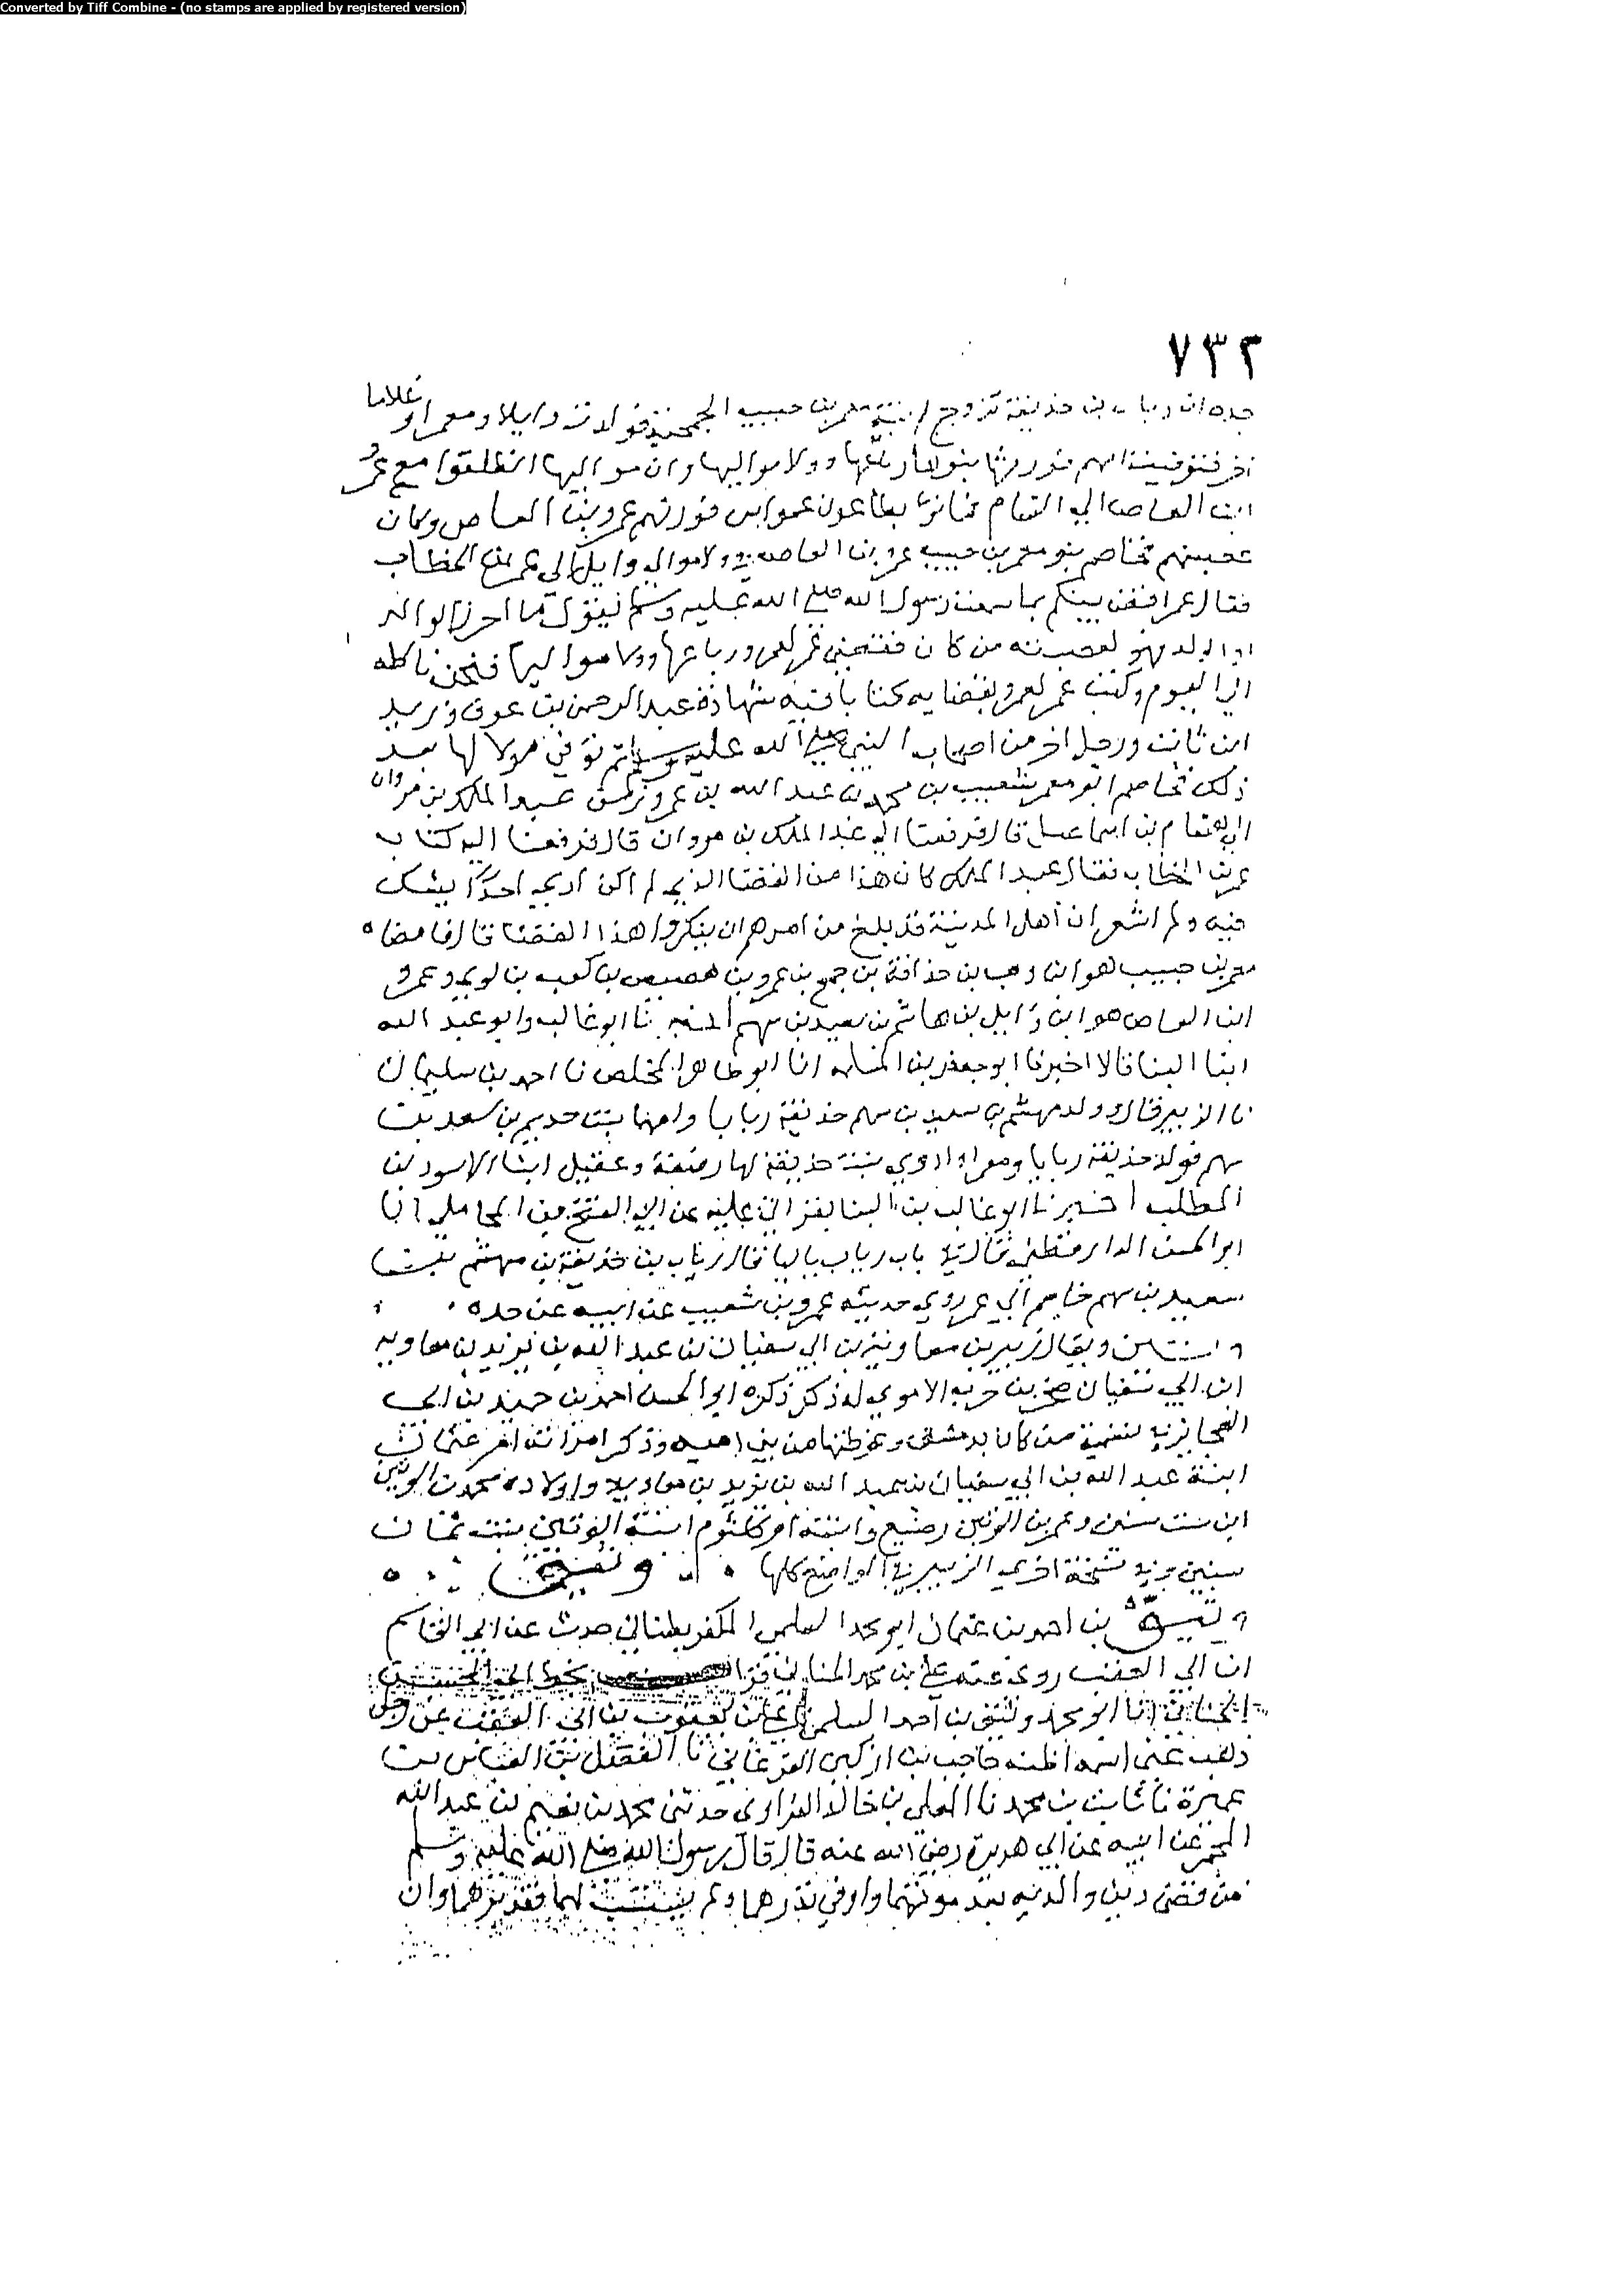 Converted by Tiff Combine - (no stamps are applied by registered version)
٧٣٢
جده ان رباب بن حذيفة تزوج ابنة معمر بن حبيب الجمحية فولدت وايلا ومعمرا وغلاما
اخر فتوفيت امهم فورثها بنوها رباعها وولا مواليها وان مواليها انطلقوا مع عمرو
ابن العاص الي الشام فماتوا بطاعون عمواس فورثهم عمرو بن العاص وكان
عصبتهم فخاصم بنو معمر بن حبيب عمرو بن العاص في ولا موالي وايل الي عمر بن الخطاب
فقال عمر اقضي بينكم بما سمعت رسول الله صلى الله عليه وسلم يقول ما احرز الوالد
او الولد فهو لعصبته من كان فقضي عمر لعمرو رباعها وولا مواليها فنحن ناكله
الي اليوم وكتب عمر لعمرو بقضايه كتابا فيه شهادة عبد الرحمن بن عوف وزيد
ابن ثابت ورجل اخر من اصحاب النبي صلى الله عليه وسلم ثم توفي مولا لها بعد
ذلك فخاصم ابو معمر شعيب بن محمد بن عبد الله بن عمرو زمن عبد الملك بن مروان
الي هشام بن اسماعيل قال فرفعنا الي عبد الملك بن مروان قال فرفعنا اليه كتاب
عمر بن الخطاب فقال عبد الملك كان هذا من القضا الذي لم اكن اري احدا يشك
فيه ولم اشعر ان اهل المدينة قد بلغ من امرهم ان ينكروا هذا القضا قال فامضاه
معمر بن حبيب هو ابن وهب بن حذافة بن جمح بن عمرو بن هصيص بن كعب بن لوي وعمرو
ابن العاص هو ابن وايل بن هاشم بن سعيد بن سهم اخبرنا ابو غالب وابو عبد الله
ابنا البنا قالا اخبرنا ابو جعفر بن المسلمة انا ابو طاهر المخلص نا احمد بن سليمان
نا الزبير قال وولد مهشم بن سعيد بن سهم حذيفة ربابا وامهما بنت حديم بن سعد بن
سهم فولد حذيفة ربابا ومعمرا واروي بنت حذيفة لها زمعة وعقيل ابنا الاسود بن
المطلب اخبرنا ابو غالب بن البنا بقراتي عليه عن ابي الفتح بن المحاملي انا
ابو الحسن الدارقطني قال في باب رباب باليا قال رياب بن حذيفة بن مهشم بن
سعيد بن سهم خاصم الي عمر روي حديثه عمرو بن شعيب عن ابيه عن جده
ويقال زبير بن معاوية بن ابي سفيان بن عبد الله بن يزيد بن معاويه
ابن ابي سفيان صخر بن حرب الاموي له ذكر ذكره ابو الحسن احمد بن حميد بن ابي
العجايز في تسمية من كان بدمشق وغوطتها من بني امية وذكر امراته ام عثمان
ابنة عبد الله بن ابي سفيان بن عبد الله بن يزيد بن معاوية واولاده محمد بن الوتين
ابن ست سنين وعمر بن الوتين رضيع وابنته ام كلثوم ابنة الوتين بنت ثمان
سنين وفي نسخة اخري الزبير في المواضع كلها
وثيق بن احمد بن عثمان ابو محمد السلمي الكفربطناني حدث عن ابي القاسم
ابن ابي العقب روي عنه علي بن محمد الحنائي قرات بخط ابي الحسن
الحنائي انا ابو محمد وثيق بن احمد السلمي نا علي بن يعقوب بن ابي العقب عن رجل
ذهب عني اسمه اظنه حاجب بن اركين الفرغاني نا الفضل بن العباس بن
عميرة نا ثابت بن محمد نا المعلي بن خالد الفزاري حدثني محمد بن نعيم بن عبد الله
المجمر عن ابيه عن ابي هريرة رضي الله عنه قال قال رسول الله صلى الله عليه وسلم
من قضى دين والديه بعد موتهما واوفي نذرهما ولم يستسب لهما فقد برهما وان